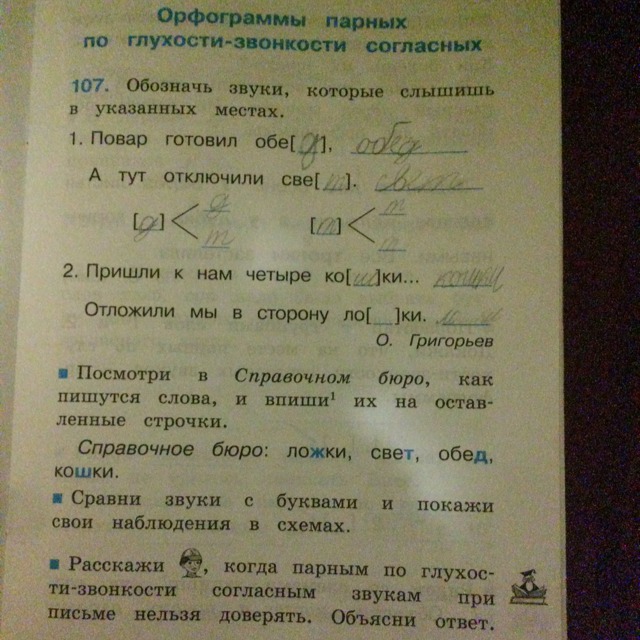 Орфограммы парных
по глухости-звонкости согласных
107. Обозначь звуки, которые слышишь
в указанных местах.
1. Повар готовил обе[д], обед
А тут отключили све[т]. свет
[д] < д т [т] < т т
2. Пришли к нам четыре ко[ш]ки... кошки
Отложили мы в сторону ло[ ]ки.
О. Григорьев
▪ Посмотри в Справочном бюро, как
пишутся слова, и впиши¹ их на остав-
ленные строчки.
Справочное бюро: ложки, свет, обед,
кошки.
▪ Сравни звуки с буквами и покажи
свои наблюдения в схемах.
▪ Расскажи , когда парным по глухос-
ти-звонкости согласным звукам при
письме нельзя доверять. Объясни ответ.